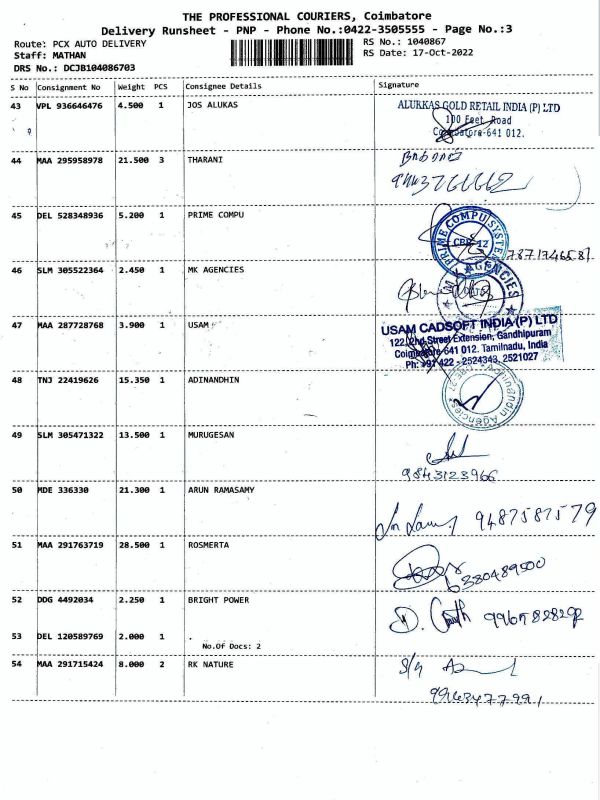 THE PROFESSIONAL COURIERS, Coimbatore
Delivery Runsheet - PNP - Phone No.:0422-3505555 - Page No.:3
Route: PCX AUTO DELIVERY
RS No.: 1040867
Staff: MATHAN
RS Date: 17-Oct-2022
DRS No.: DCJB104086703
S No Consignment No Weight PCS Consignee Details Signature
43 VPL 936646476 4.500 1 JOS ALUKAS
ALUKKAS GOLD RETAIL INDIA (P) LTD
100 Feet Road
Coimbatore-641 012.
44 MAA 295958978 21.500 3 THARANI
45 DEL 528348936 5.200 1 PRIME COMPU
PRIME COMPU SYSTEM
CBE-12
46 SLM 305522364 2.450 1 MK AGENCIES
AGENCIES
47 MAA 287728768 3.900 1 USAM
USAM CADSOFT INDIA (P) LTD
122, 2nd Street Extension, Gandhipuram
Coimbatore-641 012. Tamilnadu, India
Ph: +91 422 - 2524343, 2521027
48 TNJ 22419626 15.350 1 ADINANDHIN
Agencies
49 SLM 305471322 13.500 1 MURUGESAN
9843123966
50 MDE 336330 21.300 1 ARUN RAMASAMY
9487587579
51 MAA 291763719 28.500 1 ROSMERTA
52 DDG 4492034 2.250 1 BRIGHT POWER
53 DEL 120589769 2.000 1 .
No.Of Docs: 2
54 MAA 291715424 8.000 2 RK NATURE